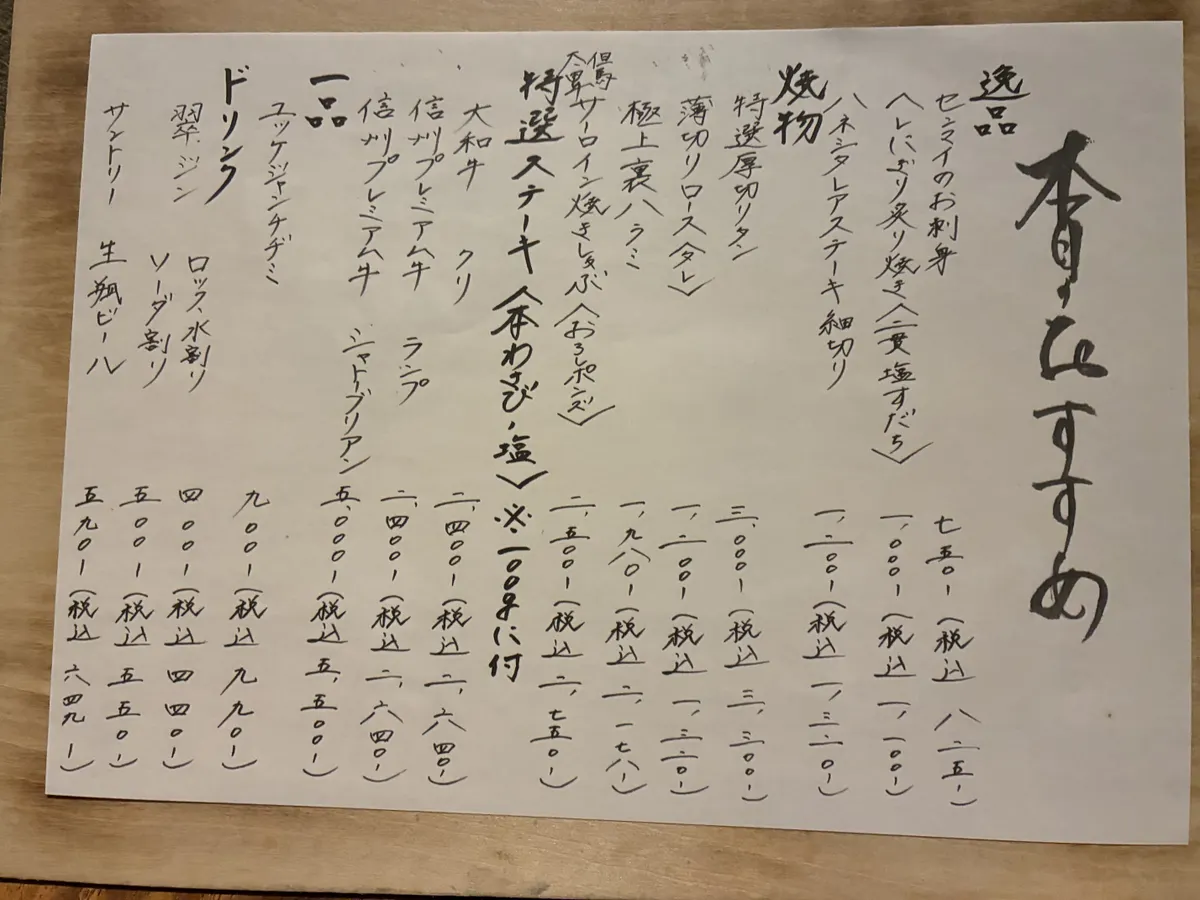 本日のおすすめ
逸品
センマイのお刺身 七五〇-(税込 八二五-)
ヘレにぎり炙り焼き〈二貫塩すだち〉 一、〇〇〇-(税込 一、一〇〇-)
ハネシタレアステーキ細切り 一、二〇〇-(税込 一、三二〇-)
焼物
特選厚切りタン 三、〇〇〇-(税込 三、三〇〇-)
薄切りロース〈タレ〉 一、二〇〇-(税込 一、三二〇-)
極上裏ハラミ 一、九八〇-(税込 二、一七八-)
但馬 サーロイン焼きしゃぶ〈おろしポンズ〉 二、五〇〇-(税込 二、七五〇-)
特選ステーキ〈本わさび・塩〉※一〇〇gに付
大和牛 クリ 二、四〇〇-(税込 二、六四〇-)
信州プレミアム牛 ランプ 二、四〇〇-(税込 二、六四〇-)
信州プレミアム牛 シャトーブリアン 五、〇〇〇-(税込 五、五〇〇-)
一品
ユッケジャンチヂミ 九〇〇-(税込 九九〇-)
ドリンク
翠・ジン ロック、水割り 四〇〇-(税込 四四〇-)
ソーダ割り 五〇〇-(税込 五五〇-)
サントリー 生瓶ビール 五九〇-(税込 六四九-)